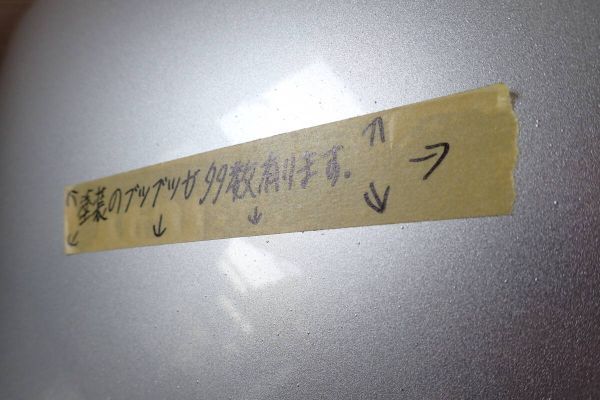 塗装のブツブツが多数有ります.